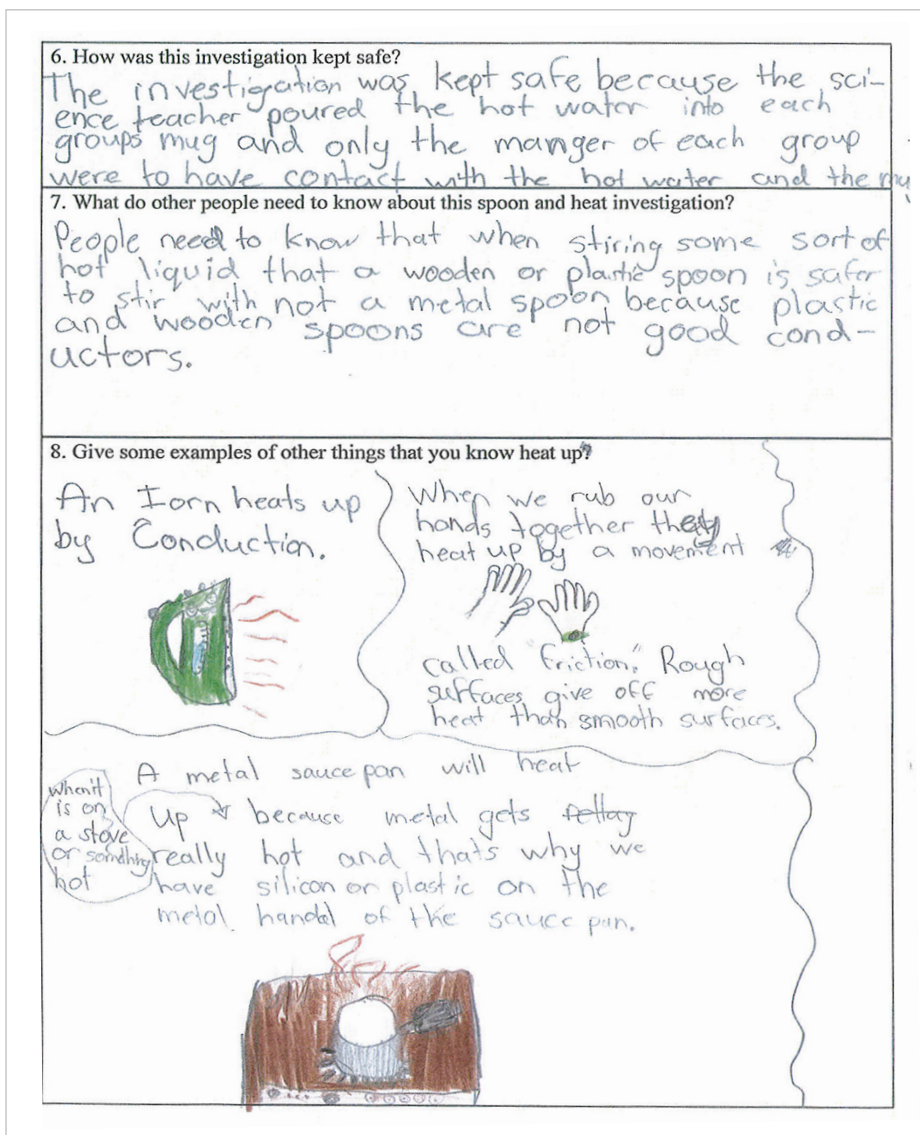 6. How was this investigation kept safe?
The investigation was kept safe because the sci-
ence teacher poured the hot water into each
groups mug and only the manger of each group
were to have contact with the hot water and the mu
7. What do other people need to know about this spoon and heat investigation?
People need to know that when stiring some sort of
hot liquid that a wooden or plastic spoon is safer
to stir with not a metal spoon because plastic
and wooden spoons are not good cond-
uctors.
8. Give some examples of other things that you know heat up?
An Iorn heats up
by Conduction.
When we rub our
hands together they
heat up by a movement
called "friction." Rough
surfaces give off more
heat than smooth surfaces.
A metal sauce pan will heat
up because metal gets
really hot and thats why we
have silicon or plastic on the
metal handel of the sauce pan.
When it
is on
a stove
or something
hot